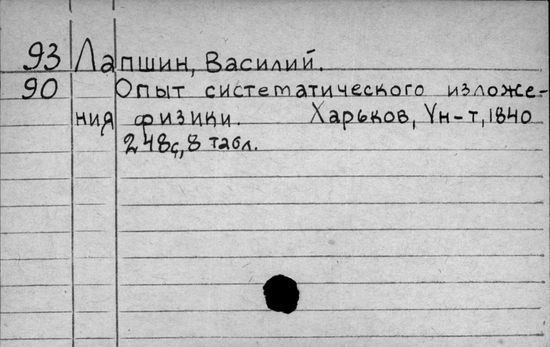 93 Лапшин, Василий.
90 Опыт систематического изложе-
ния физики. Харьков, Ун-т, 1840
248с, 8 табл.